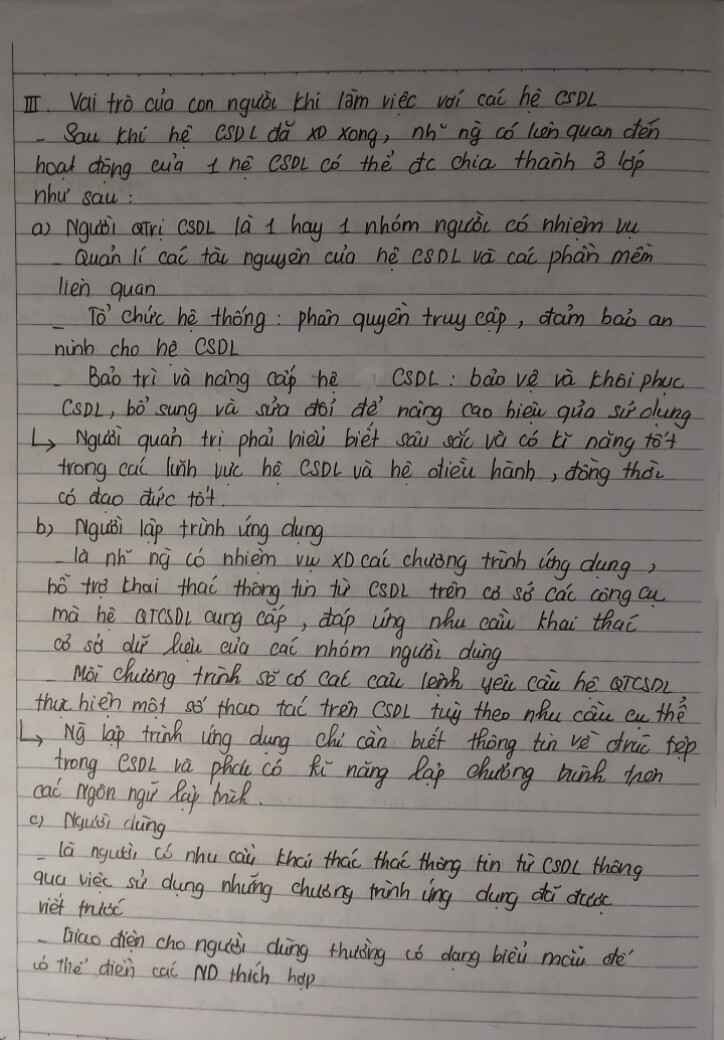 III. Vai trò của con người khi làm việc với các hệ CSDL
- Sau khi hệ CSDL đã XD xong, nh~ ng̀ có liên quan đến
hoạt động của 1 hệ CSDL có thể đc chia thành 3 lớp
như sau :
a) Người QTrị CSDL là 1 hay 1 nhóm người có nhiệm vụ
- Quản lí các tài nguyên của hệ CSDL và các phần mềm
liên quan
- Tổ chức hệ thống : phân quyền truy cập , đảm bảo an
ninh cho hệ CSDL
- Bảo trì và nâng cấp hệ CSDL : bảo vệ và khôi phục
CSDL, bổ sung và sửa đổi để nâng cao hiệu qủa sử dụng
↳ Người quản trị phải hiểu biết sâu sắc và có kĩ năng tốt
trong các lĩnh vực hệ CSDL và hệ điều hành , đồng thời
có đạo đức tốt.
b) Người lập trình ứng dụng
- là nh~ ng̀ có nhiệm vụ XD các chương trình ứng dụng ,
hỗ trợ khai thác thông tin từ CSDL trên cơ sở các công cụ
mà hệ QTCSDL cung cấp , đáp ứng nhu cầu khai thác
cơ sở dữ liệu của các nhóm người dùng
- Mỗi chương trình sẽ có các câu lệnh yêu cầu hệ QTCSDL
thực hiện một số thao tác trên CSDL tuỳ theo nhu cầu cụ thể
↳ Ng̀ lập trình ứng dụng chỉ cần biết thông tin về ctrúc tệp
trong CSDL và phải có kĩ năng lập chương trình trên
các ngôn ngữ lập trình.
c) Người dùng
- là người có nhu cầu khai thác thác thông tin từ CSDL thông
qua việc sử dụng những chương trình ứng dụng đã được
viết trước
- Giao diện cho người dùng thường có dạng biểu mẫu để
có thể điền các ND thích hợp